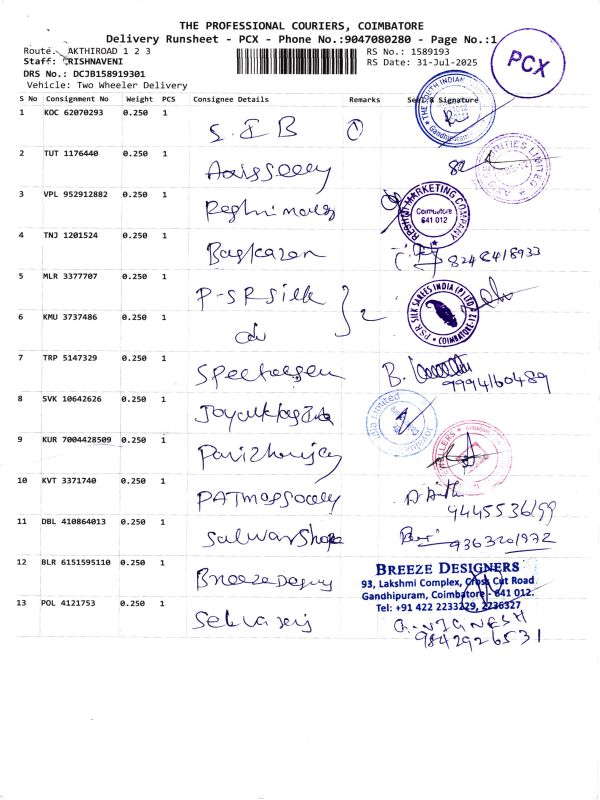 THE PROFESSIONAL COURIERS, COIMBATORE
Delivery Runsheet - PCX - Phone No.:9047080280 - Page No.:1
Route. AKTHIROAD 1 2 3
RS No.: 1589193
PCX
Staff: RISHNAVENI
RS Date: 31-Jul-2025
DRS No.: DCJB158919301
Vehicle: Two Wheeler Delivery
S No Consignment No Weight PCS Consignee Details Remarks Seal & Signature
1 KOC 62070293 0.250 1 S.I B 1
THE SOUTH INDIAN
Gandhipuram
2 TUT 1176440 0.250 1 82
LIMITED
3 VPL 952912882 0.250 1
RESHMI MARKETING COMPANY
Coimbatore
641 012
4 TNJ 1201524 0.250 1 Baskaran 8248418933
5 MLR 3377707 0.250 1 P-S R silk 2
PSR SILK SAREES INDIA (P) LTD
COIMBATORE-12
6 KMU 3737486 0.250 1 do
7 TRP 5147329 0.250 1 B. 9994160489
8 SVK 10642626 0.250 1
India Limited
9 KUR 7004428509 0.250 1
JEWELLERS
10 KVT 3371740 0.250 1 9445536199
11 DBL 410864013 0.250 1 Salwar Shop 9363201972
12 BLR 6151595110 0.250 1
BREEZE DESIGNERS
93, Lakshmi Complex, Cross Cut Road
Gandhipuram, Coimbatore - 641 012.
Tel: +91 422 2233229, 2236327
13 POL 4121753 0.250 1 G. VIGNESH
9842926531